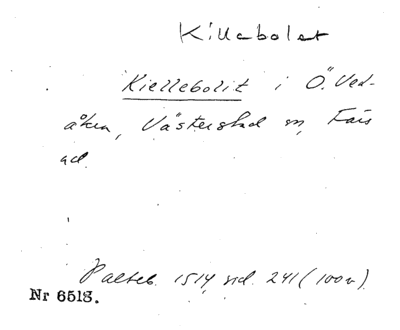 Killebolet
Kiellebolit i Ö. Ved-
åkra, Västerstad sn, Färs
hd.
Palteb. 1514, sid. 241 (100v)
Nr 6513.